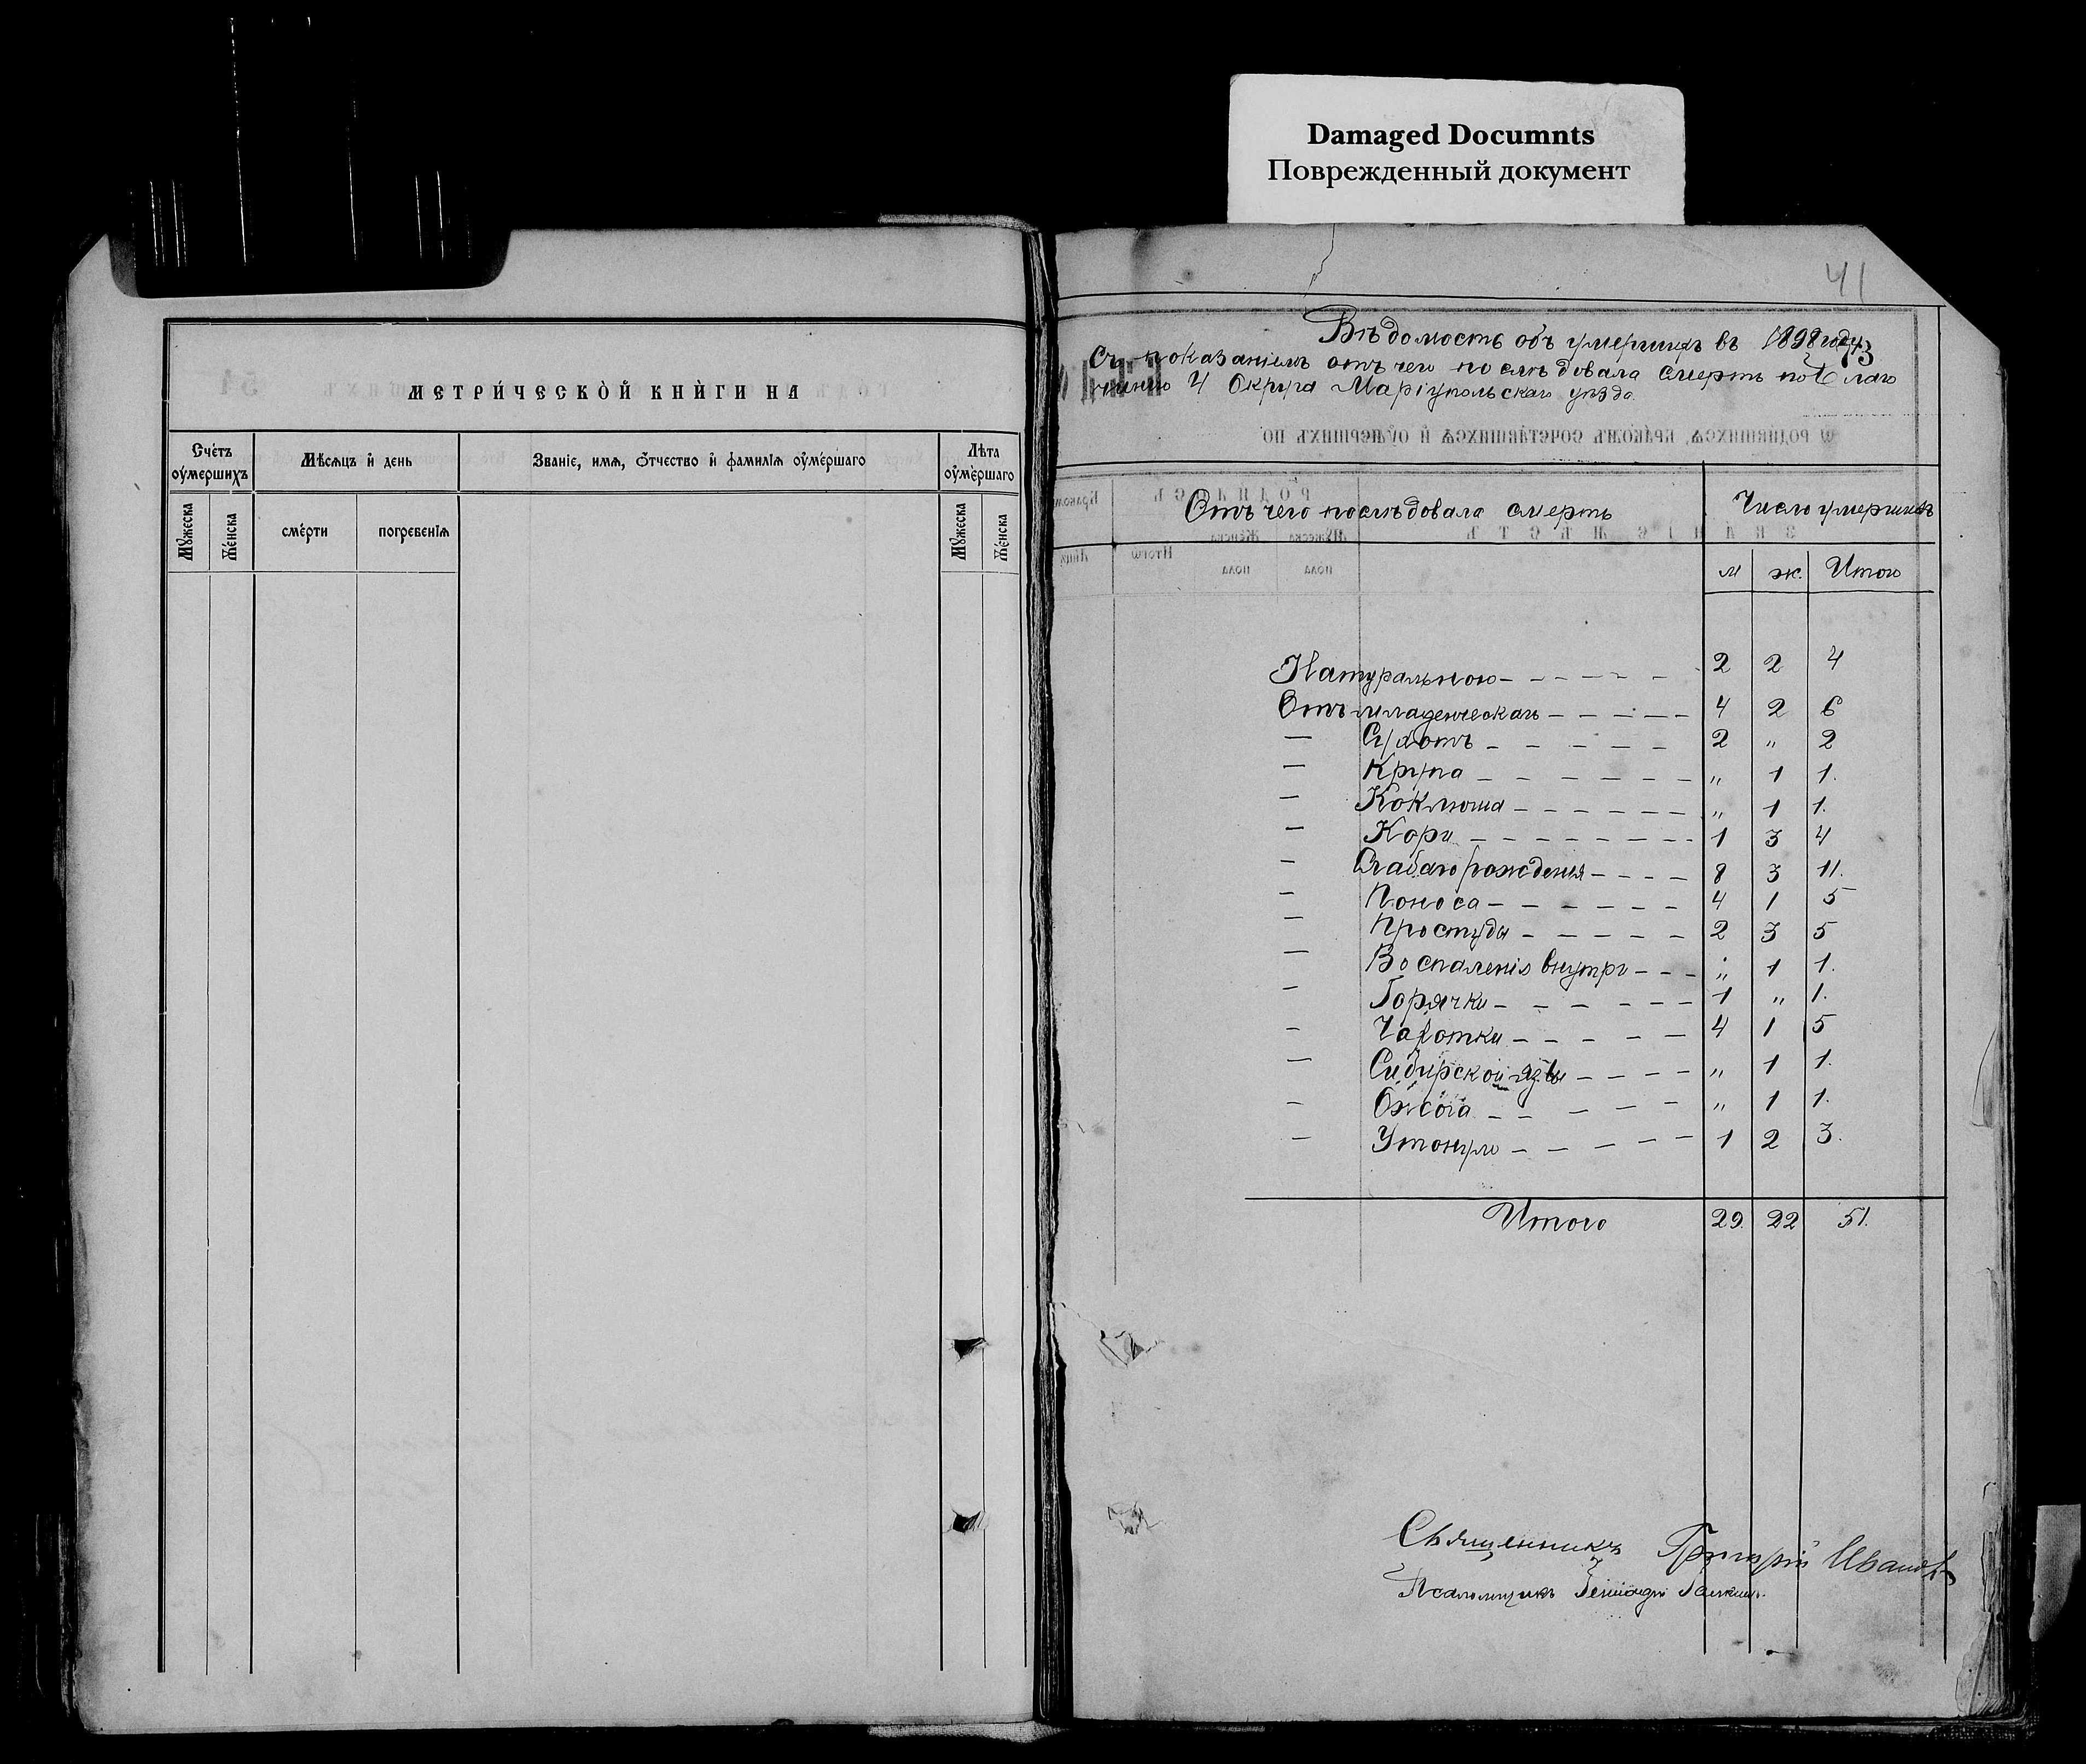 Damaged Documnts
Поврежденный документ
МЕТРИ́ЧЕСКОЙ КНИ́ГИ НА
Сче́тъ оу҆мершихъ
Мѣсѧцъ и҆ день
Званїе, имѧ, ѻ҆тчество и҆ фамилїѧ оу҆ме́ршаго
Лѣта оу҆ме́ршаго
Мꙋжеска
Же́нска
сме́рти
погребенїѧ
Мꙋжеска
Же́нска
41
Вѣдомость объ умершихъ въ 1898 году
73
Съ показаніемъ отъ чего послѣдовала смерть по Благо
чинію 4 Округа Маріупольскаго уѣзда
Отъ чего послѣдовала смерть
Число умершихъ
м ж. Итого
Натуральною — — — — — 2 2 4
Отъ младенческаго — — — — — 4 2 6
— — — — — — 2 „ 2
— Крупа — — — — — — „ 1 1.
— Коклюша — — — — — — „ 1 1.
— Кори — — — — — — — 1 3 4
— Слабаго рожденія — — — — 8 3 11.
— Поноса — — — — — — 4 1 5
— Простуды — — — — — 2 3 5
— Воспаленія внутри — — — „ 1 1.
— Горячки — — — — — — 1 „ 1.
— Чахотки — — — — — 4 1 5
— Сибирской язвы — — — — „ 1 1.
— Ожога — — — — — „ 1 1.
— Утонуло — — — — — 1 2 3.
Итого 29. 22 51.
Священникъ Григорій Ивановъ
Псаломщикъ Геннадій